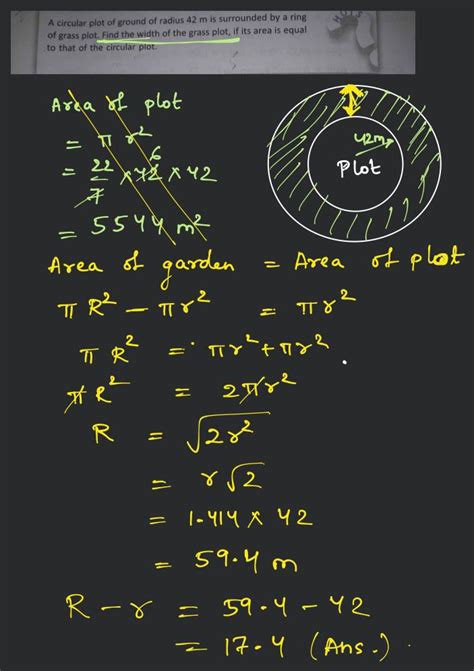 A circular plot of ground of radius 42 m is surrounded by a ring
of grass plot. Find the width of the grass plot, if its area is equal
to that of the circular plot.
Area of plot
= π r²
= 22/7 × 42 6 × 42
= 5544 m²
42m
Plot
Area of garden = Area of plot
πR² - πr² = πr²
πR² = πr² + πr²
πR² = 2πr²
R = √2r²
= r√2
= 1.414 × 42
= 59.4 m
R - r = 59.4 - 42
= 17.4 (Ans.)